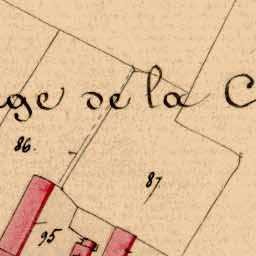 ge de la C
86.
87.
95